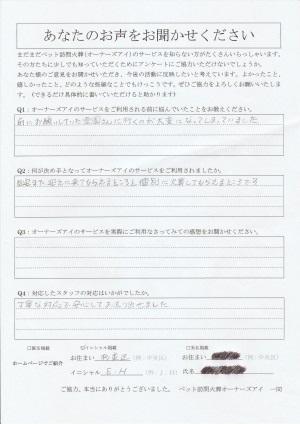 あなたのお声をお聞かせください
まだまだペット訪問火葬(オーナーズアイ)のサービスを知らない方がたくさんいらっしゃいます。
その方たちに少しでも知っていただくためにアンケートにご協力いただけないでしょうか。
あなた様のご意見をお聞かせいただき、今後の活動に反映したいと考えています。よかったこと、
嬉しかったこと、どのような些細なことでもけっこうです。ぜひご協力をよろしくお願いいたします。
(できるだけ具体的に書いていただけると助かります)
Q1:オーナーズアイのサービスをご利用される前に悩んでいたことをお教えください。
前にお願いしていた霊園さんに行くのが大変になってしまっていました
Q2:何が決め手となってオーナーズアイのサービスをご利用されましたか。
個別に火葬してもらえるところです
Q3:オーナーズアイのサービスを実際にご利用なさってみての感想をお聞かせください。
Q4:対応したスタッフの対応はいかがでしたか。
丁寧な対応で安心してお送り出せました
□匿名掲載 ☑イニシャル掲載 □実名掲載
ホームページでご紹介
お住まい (例:中央区) お住まい (例:中央区)
イニシャル S.H (例:J.H) 氏名
ご協力、本当にありがとうございました。 ペット訪問火葬オーナーズアイ 一同